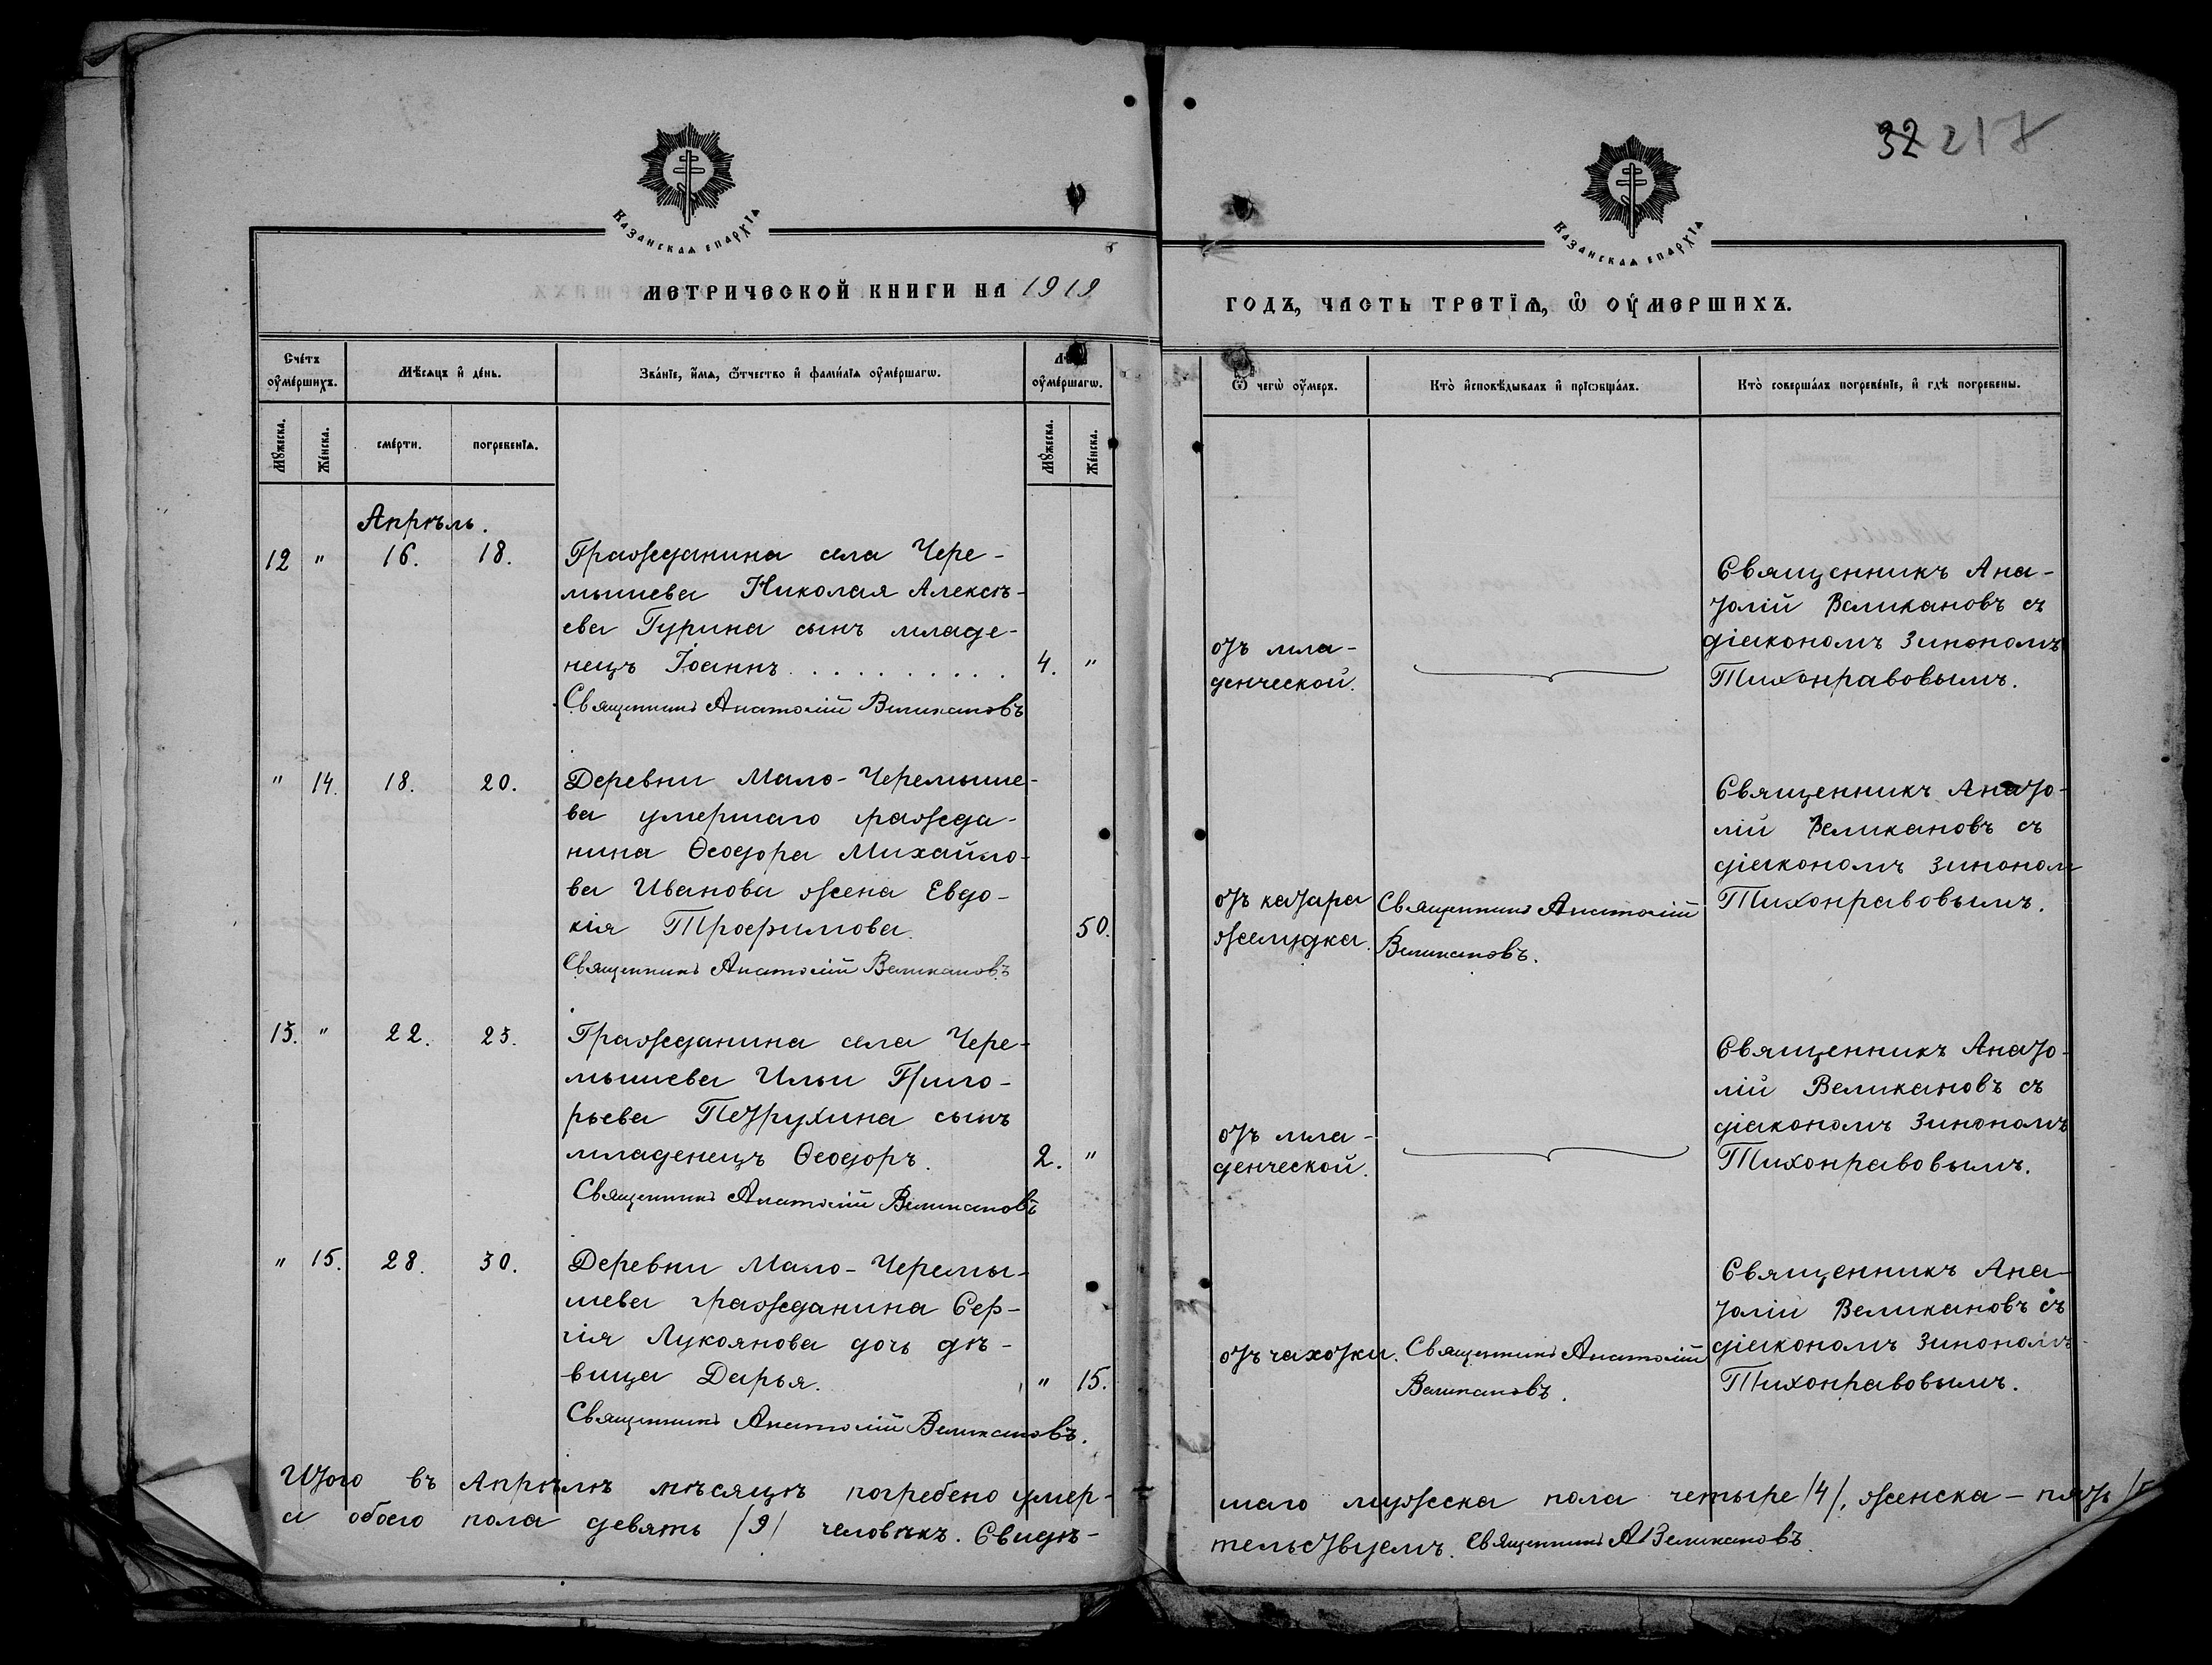 32 217
Казанская епархїѧ
Казанская епархїѧ
метрической книги на 1919
годъ, часть третїѧ, ѡ оу҆мершихъ.
Сче́тъ оу҆ме́ршихъ.
Мѣ́сѧцъ и҆ де́нь.
Зва́нїе, и҆́мѧ, ѻ҆́тчество и҆ фами́лїѧ оу҆ме́ршагѡ.
оу҆ме́ршагѡ.
Ѿ чегѡ̀ оу҆́меръ.
Кто̀ и҆сповѣ́дывалъ и҆ прїѡбща́лъ.
Кто̀ соверша́лъ погребе́нїе, и҆ гдѣ̀ погребены.
Мꙋ́жеска.
Же́нска.
сме́рти.
погребенїѧ.
Мꙋ́жеска.
Же́нска.
Апрѣль.
12 " 16. 18. Гражданина села Чере-
мышева Николая Алексѣ-
ева Гурина сынъ младе-
нецъ Іоаннъ. . . . . . . . . . 4. "
Священникъ Анатолій Великановъ
отъ мла-
денческой.
Священникъ Ана-
толій Великановъ съ
діакономъ Зинономъ
Тихонравовымъ.
" 14. 18. 20. Деревни Мало-Черемыше-
ва умершаго гражда-
нина Ѳеодора Михайло-
ва Иванова жена Евдо-
кія Трофимова. 50.
Священникъ Анатолій Великановъ
отъ катара
желудка.
Священникъ Анатолій
Великановъ.
Священникъ Анато-
лій Великановъ съ
діакономъ Зинономъ
Тихонравовымъ.
13. " 22. 23. Гражданина села Чере-
мышева Ильи Григо-
рьева Петрухина сынъ
младенецъ Ѳеодоръ. 2. "
Священникъ Анатолій Великановъ
отъ мла-
денческой.
Священникъ Анато-
лій Великановъ съ
діакономъ Зинономъ
Тихонравовымъ.
" 15. 28. 30. Деревни Мало-Черемы-
шева гражданина Сер-
гія Лукоянова дочь дѣ-
вица Дарья. " 15.
Священникъ Анатолій Великановъ.
отъ чахотки.
Священникъ Анатолій
Великановъ.
Священникъ Ана-
толій Великановъ съ
діакономъ Зинономъ
Тихонравовымъ.
Итого въ Апрѣлѣ мѣсяцѣ погребено умер-
шаго мужеска пола четыре /4/, женска – пять /5
а обоего пола девять /9/ человѣкъ. Свидѣ-
тельствуемъ. Священникъ А Великановъ